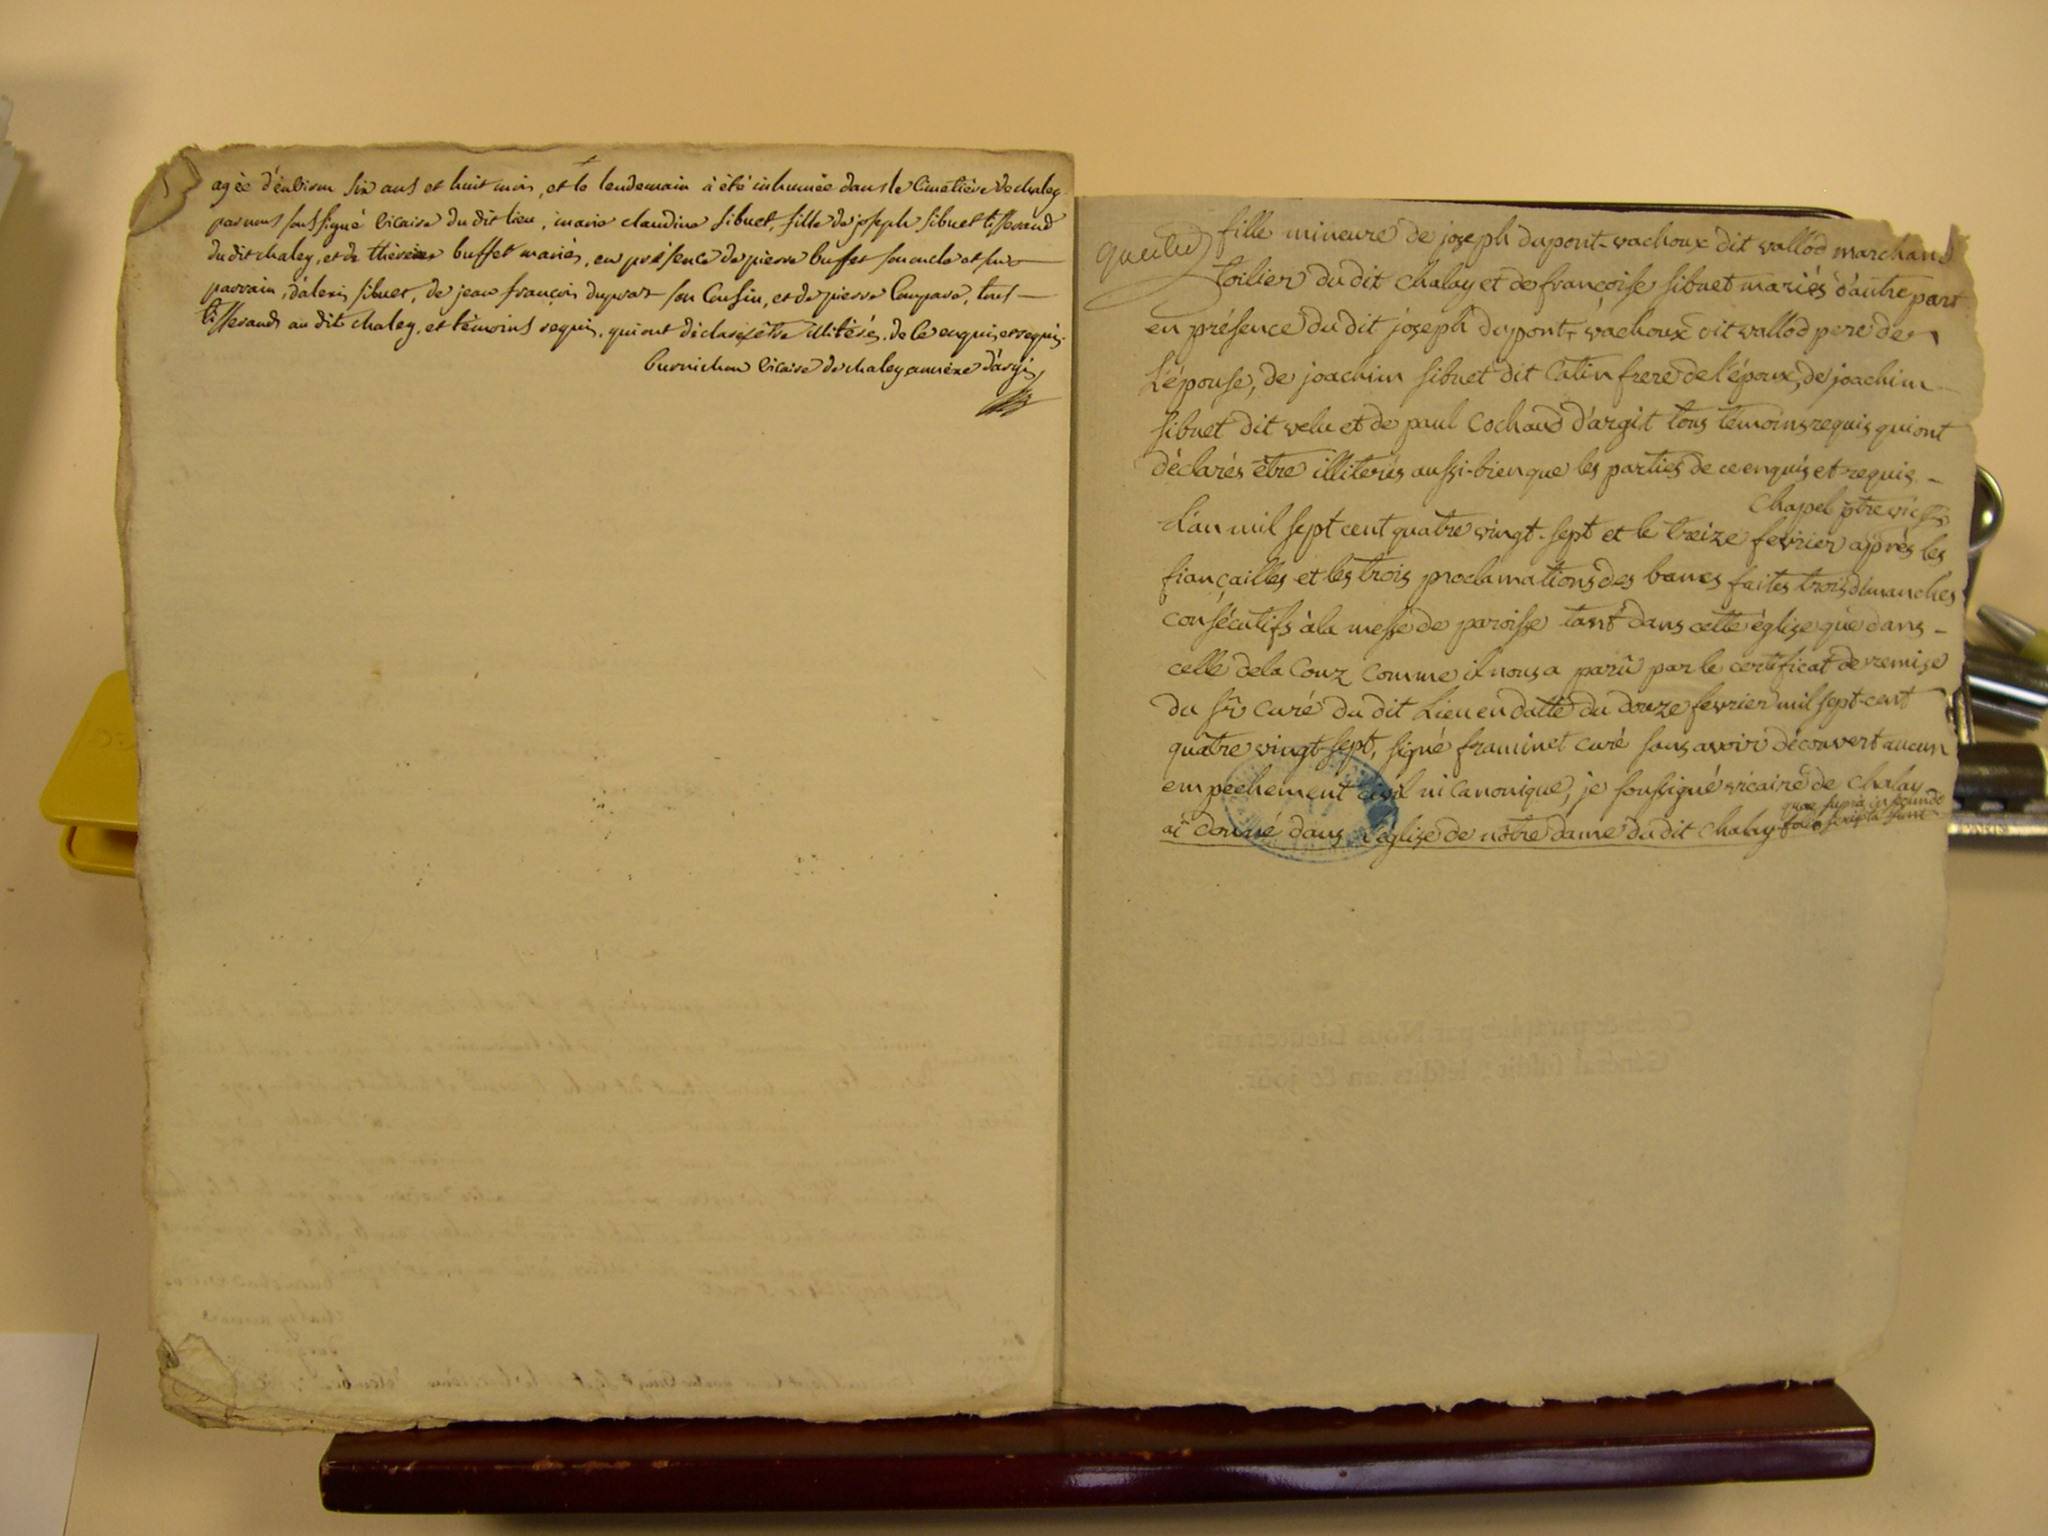 agèe d'énbiron six ans et huit mois, et le lendemain à été inhumée dans le Cimetière de chaley
par nous soussigné bicaire du dit lieu, marie claudine sibuet, fille de joseph sibuet tisserand
du dit chaley, et de thérèse buffet mariés, en présence de pierre buffet son oncle et son
parrain, d'alexis sibuet, de jean françois duprat son Cousin, et de pierre Compare, tous
tisserands au dit chaley, et témoins requis, qui ont déclarés être illitérés, de le enquis et requis.
burnichon bicaire de chaley annèxe d'argis
fille mineure de joseph dupont-vachoux dit vallod marchand
toilier du dit chalay et de françoise sibuet mariés d'autre part
en présence du dit joseph dupont-vachoux dit vallod pere de
L'épouse, de joachim sibuet dit Catin frere de l'époux, de joachim
sibuet dit velu et de paul Cochaud d'argit tous témoins requis qui ont
déclarés être illiterés aussi-bien que les parties de ce enquis et requis -
Chapel ptre vic
L'an mil sept cent quatre vingt-sept et le treize fevrier après les
fiançailles et les trois proclamations des bancs faites trois dimanches
consécutifs à la messe de paroisse tant dans cette église que dans -
celle de la Couz comme il nous a parû par le certificat de remise
du sr. Curé du dit Lieu en datte du douze fevrier mil sept-cent
quatre vingt-sept, signé framinet curé sans avoir découvert aucun
empechement civil ni Canonique, je soussigné vicaire de chalay
quae supra in secundo
ai donné dans l'église de nôtre dame du dit chalay folio scripta sunt